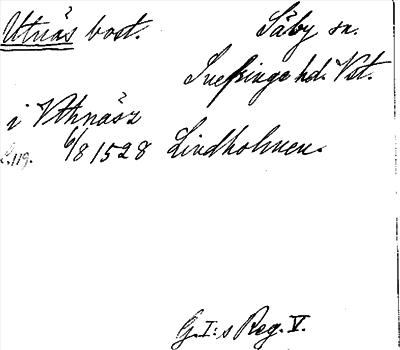 Utnäs bost. Säby sn.
Snefringe hd. Vst.
i Vthnäsz
S.119. 6/8 1528 Lindholmen.
G.I:s Reg. V.